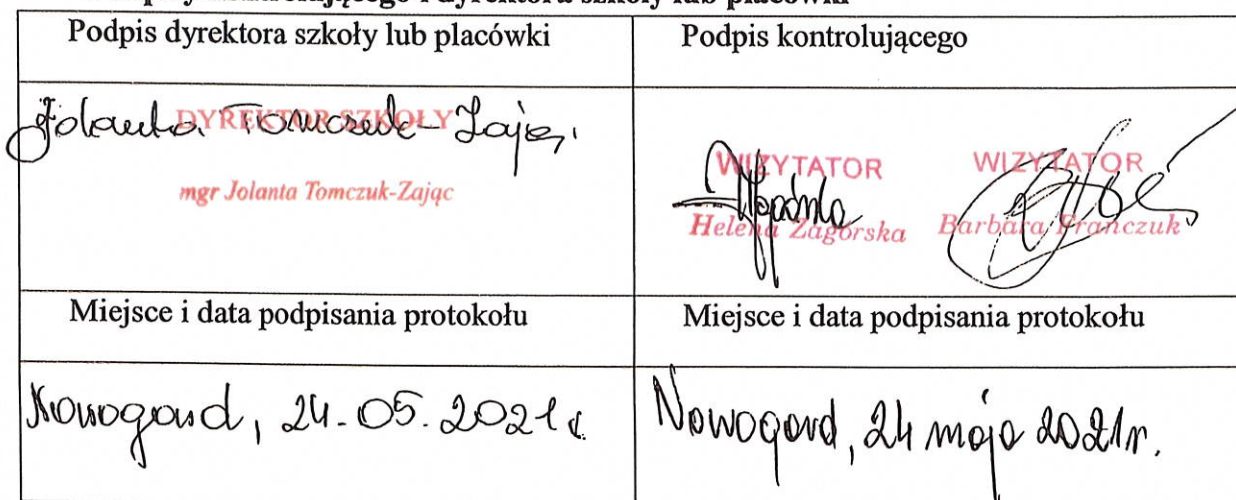 Podpis dyrektora szkoły lub placówki
Podpis kontrolującego
DYREKTOR SZKOŁY
Jolanta Tomczuk-Zając
mgr Jolanta Tomczuk-Zając
WIZYTATOR
Helena Zagórska
WIZYTATOR
Barbara Franczuk
Miejsce i data podpisania protokołu
Miejsce i data podpisania protokołu
Nowogard, 24.05.2021 r.
Nowogard, 24 maja 2021r.